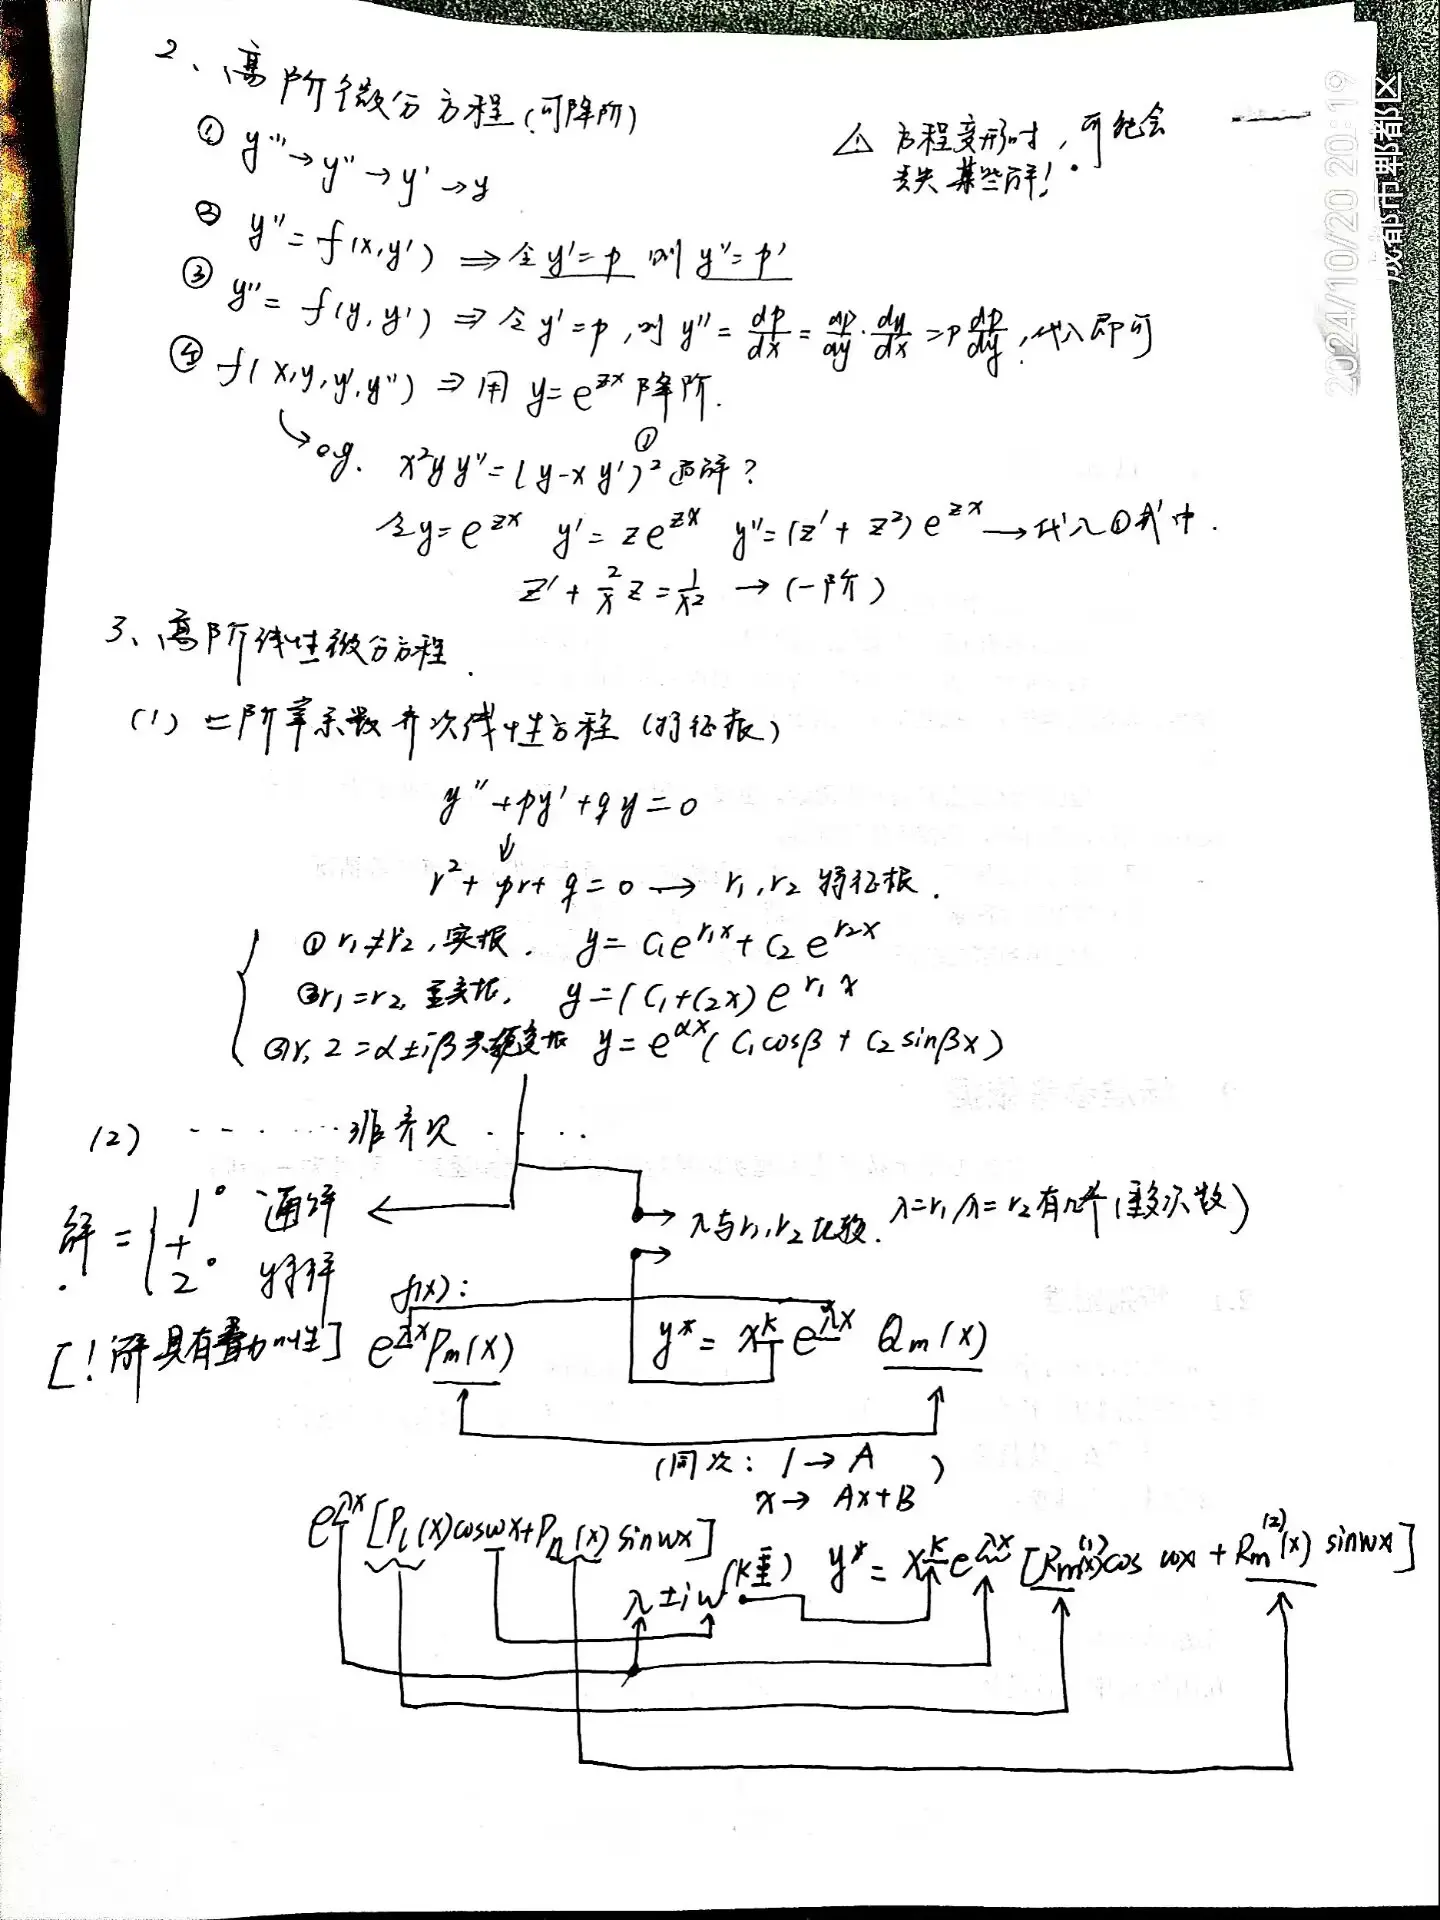 2、高阶微分方程(可降阶)
⚠ 方程变形时，可能会
丢失某些解！
① y'''→y''→y'→y
② y''=f(x,y') ⇒ 令y'=p 则y''=p'
③ y''=f(y,y') ⇒ 令y'=p，则y''=dp/dx=dp/dy·dy/dx=p dp/dy，代入即可
④ f(x,y,y',y'') ⇒ 用 y=e^{zx} 降阶.
e.g. x²yy''=(y-xy')² ① 通解？
令y=e^{zx} y'=ze^{zx} y''=(z'+z²)e^{zx} → 代入①式中.
z'+2/x z=1/x² → (一阶)
3、高阶线性微分方程.
(1) 二阶常系数齐次线性方程(特征根)
y''+py'+qy=0
↓
r²+pr+q=0 → r₁,r₂ 特征根.
① r₁≠r₂,实根. y=C₁e^{r₁x}+C₂e^{r₂x}
② r₁=r₂,重实根, y=(C₁+C₂x)e^{r₁x}
③ r,2=α±iβ共轭复根 y=e^{αx}(C₁cosβ+C₂sinβx)
(2) ‥‥‥非齐次‥‥
解={1° 通解
+
2° 特解
λ与r₁,r₂比较. λ=r₁/λ=r₂有几个(重多次数)
[!解具有叠加性]
f(x):
e^{λx}Pm(x) y*=x^k e^{λx} Qm(x)
(同次：1→A
x→Ax+B)
e^{λx}[P_l(x)coswx+P_n(x)sinwx]
λ±iw(k重) y*=x^k e^{λx}[Rm^{(1)}(x)cos wx+Rm^{(2)}(x)sinwx]
2024/10/20 20:19
成都市郫都区